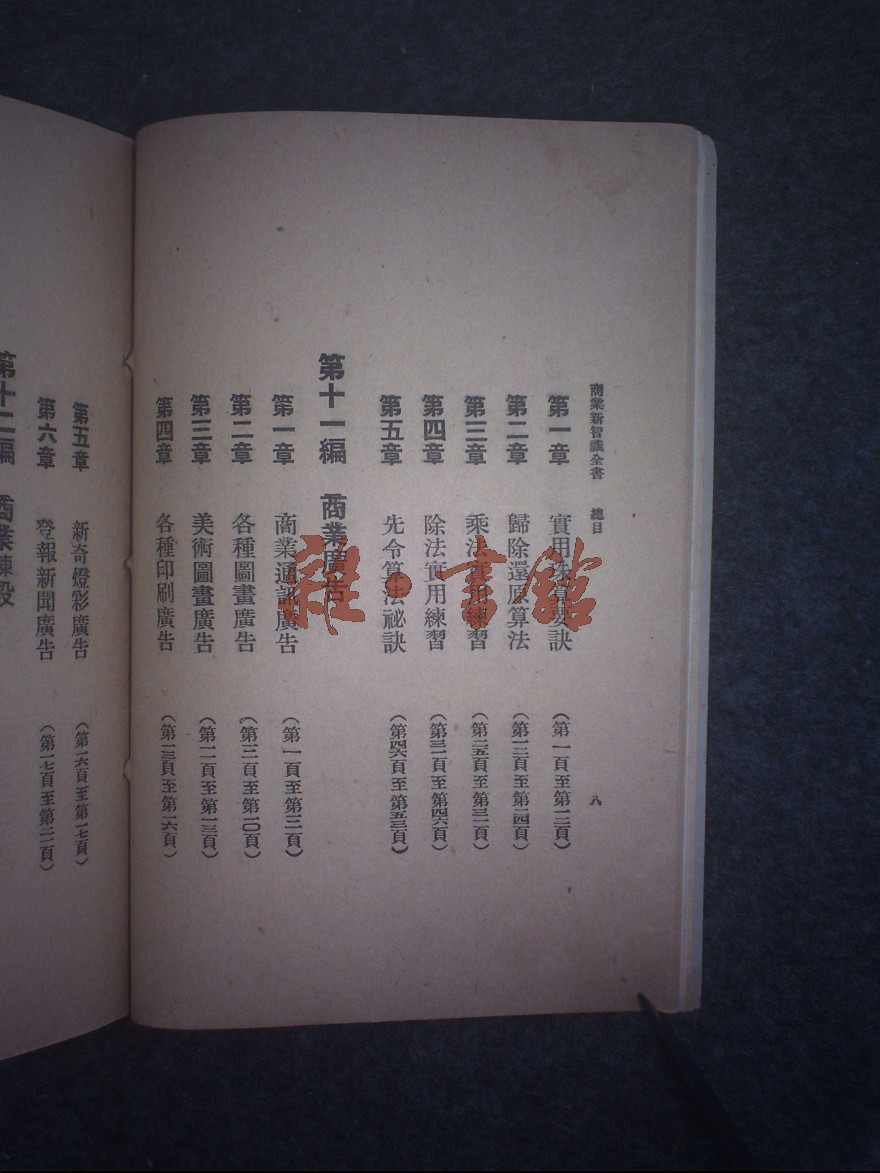 商業新智識全書 總目 八
第一章 實用珠算要訣 (第一頁至第一二頁)
第二章 歸除還原算法 (第一二頁至第二四頁)
第三章 乘法實用練習 (第二五頁至第三二頁)
第四章 除法實用練習 (第三二頁至第四六頁)
第五章 先令算法祕訣 (第四六頁至第五三頁)
第十一編 商業廣告
第一章 商業通訊廣告 (第一頁至第三頁)
第二章 各種圖畫廣告 (第三頁至第一〇頁)
第三章 美術圖畫廣告 (第一一頁至第一三頁)
第四章 各種印刷廣告 (第一三頁至第一六頁)
第五章 新奇燈彩廣告 (第一六頁至第一七頁)
第六章 登報新聞廣告 (第一七頁至第二二頁)
第十二編 商業
雜·書館